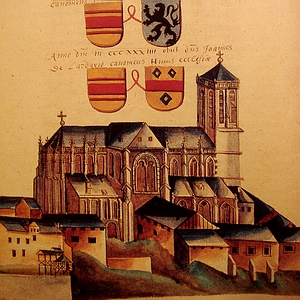 canonicus
Anno dñi M CCCC XXX IIII obiit dñs Joannes
De canonicus Huius ecclesiæ